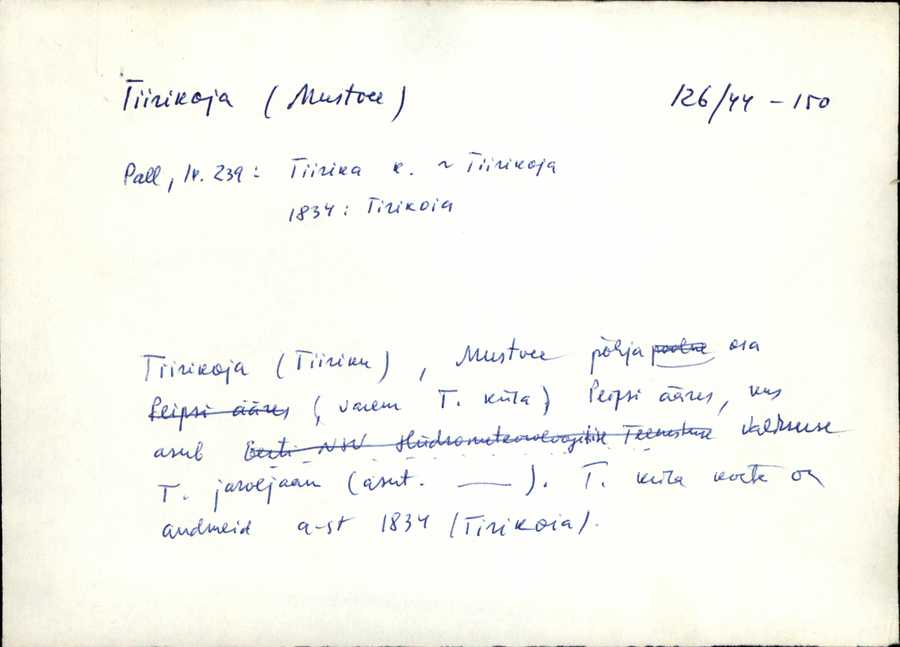 Tiirikoja (Mustvee) 126/44 - 150
Pall, lk. 239: Tiirika k. ~ Tiirikoja
1834: Tirikoia
Tiirikoja (Tiiriku), Mustvee põhja poolne osa
Peipsi ääres (varem T. küla) Peipsi ääres, kus
asub Eesti NSV Hüdrometeoroloogilise Teenistuse
T. järvejaam (asut. ——). T. küla kohta on
andmeid a-st 1834 (Tirikoia).